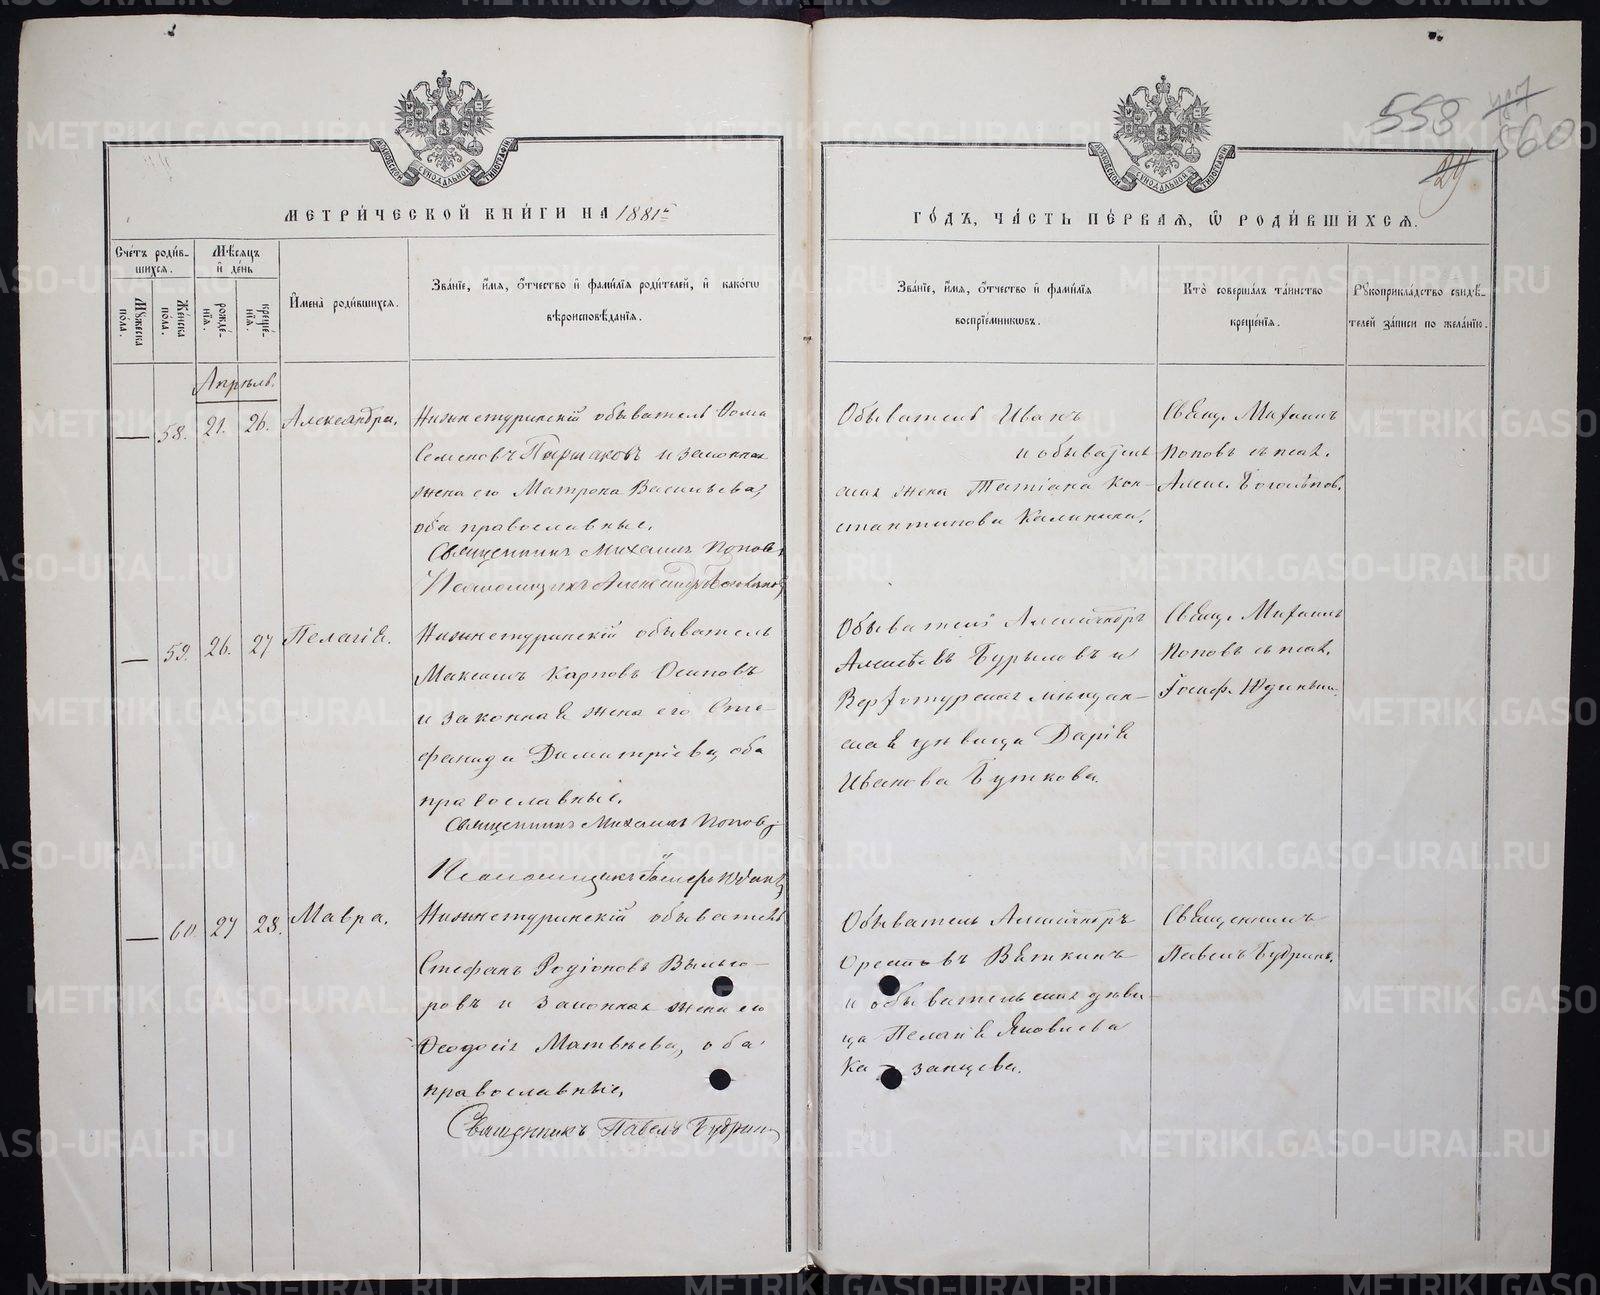 558 560
29
МОСКОВСКОЙ СѴНОДАЛЬНОЙ ТИПОГРАФІИ
МОСКОВСКОЙ СѴНОДАЛЬНОЙ ТИПОГРАФІИ
МЕТРИ́ЧЕСКОЙ КНИ́ГИ НА 1881й
ГО́ДЪ, ЧА́СТЬ ПЕ́РВАЯ, Ѽ РОДИ́ВШИХСЯ.
Сче́тъ роди́в-
шихся.
Мѣ́сяцъ
и҆ де́нь
Мꙋ́жеска
по́ла.
Же́нска
по́ла.
рожде́-
нїя.
креще́-
нїя.
И҆мена̀ роди́вшихся.
Зва́нїе, и҆́мя, ѻ҆́тчество и҆ фами́лїя роди́телей, и҆ како́гѡ
вѣроисповѣ́данїя.
Зва́нїе, и҆́мя, ѻ҆́тчество и҆ фами́лїя
воспрїе́мникѡвъ.
Кто̀ соверша́лъ та́инство
креще́нїя.
Рꙋкоприкла́дство свидѣ́-
телей за́писи по жела́нїю.
Апрѣль.
— 58. 21. 26. Александра.
Нижнетуринскій обыватель Ѳома
Семеновъ Паршаковъ и законная
жена его Матрона Васильева,
оба православные.
Священникъ Михаилъ Поповъ
Псаломщикъ
Обыватель Иванъ
и обыватель-
ская жена Татіана Кон-
стантинова Калинина.
Свящ. Михаилъ
Поповъ съ псал.
— 59. 26. 27 Пелагія.
Нижнетуринскій обыватель
Максимъ Карповъ Осиповъ
и законная жена его Сте-
фанида Димитріева, оба
православные.
Священникъ Михаилъ Поповъ
Псаломщикъ Іосифъ
Обыватель Александръ
Алексѣевъ Бурыловъ и
Верхотурская мѣщан-
ская дѣвица Дарія
Иванова Буткова.
Свящ. Михаилъ
Поповъ съ псал.
Іосиф.
— 60. 27 28. Мавра.
Нижнетуринскій обыватель
Стефанъ Родіоновъ Вылего-
ровъ и законная жена его
Ѳеодосія Матвѣева, оба
православные.
Священникъ Павелъ Будринъ
Обыватель Александръ
Орестовъ Вяткинъ
и обывательская дѣви-
ца Пелагія Яковлева
Казанцева.
Священникъ
Павелъ Будринъ.
METRIKI.GASO-URAL.RU